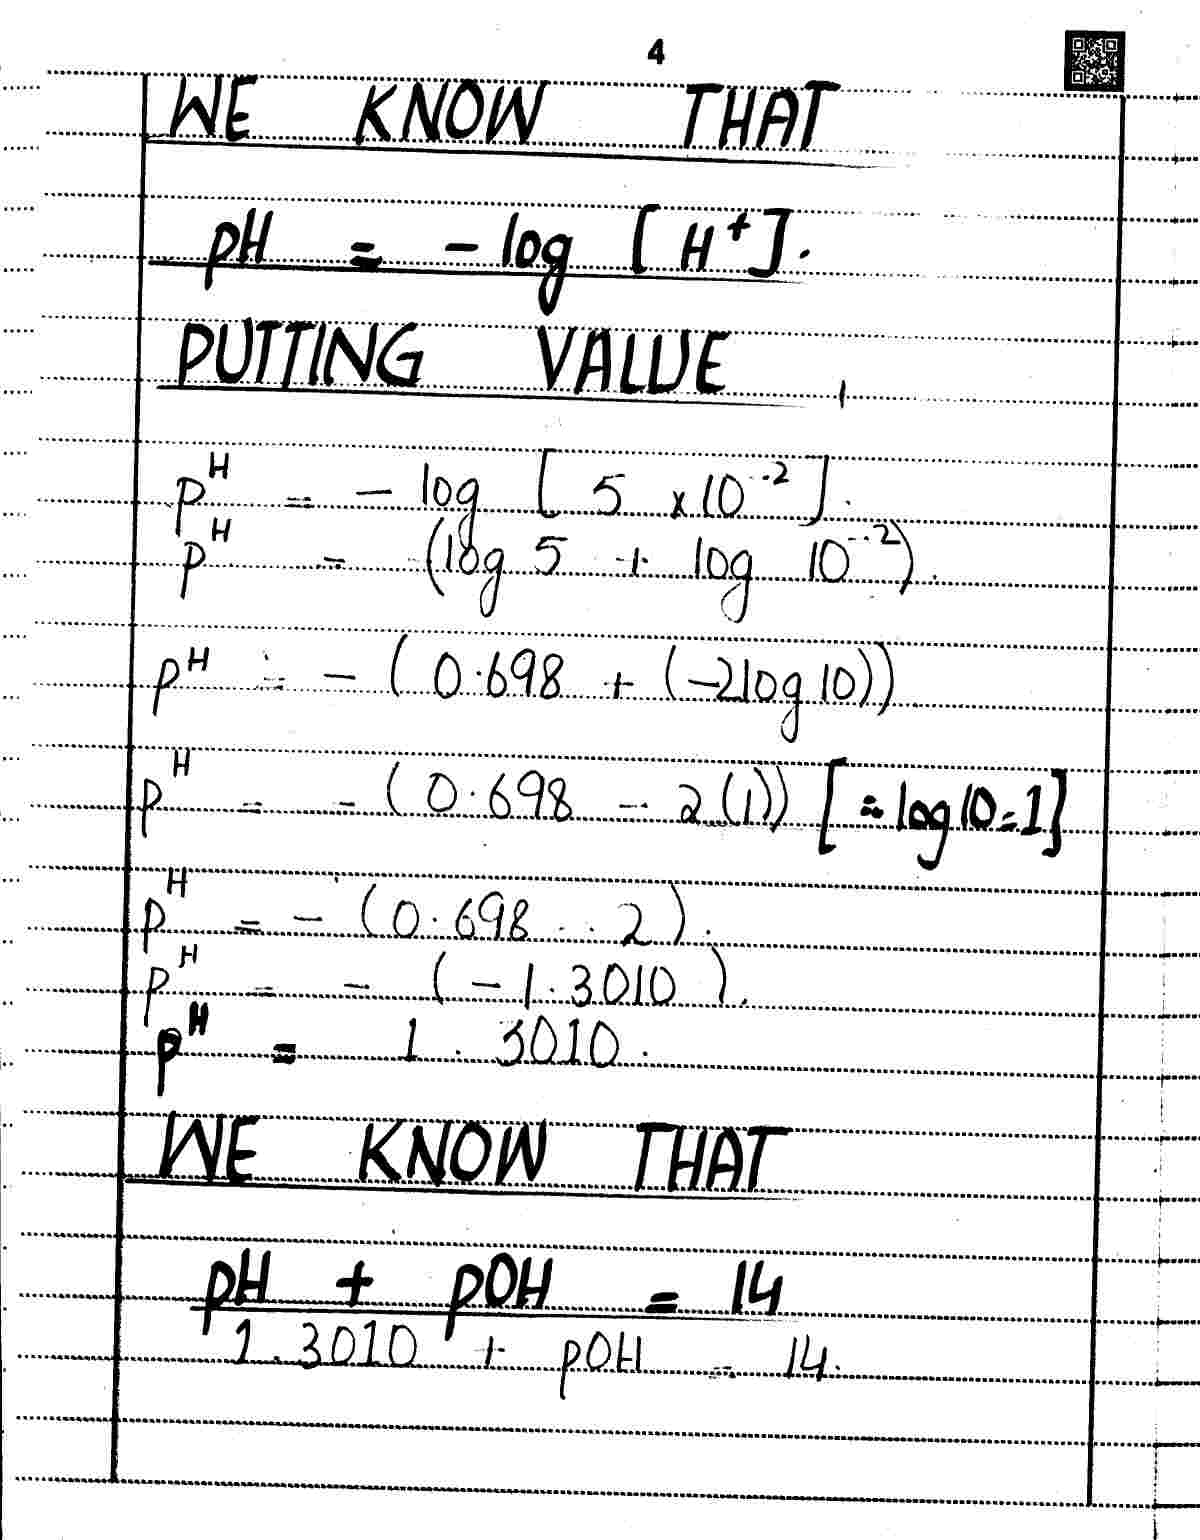 4
WE KNOW THAT
pH = - log [H⁺].
PUTTING VALUE,
pᴴ = - log [5 × 10⁻²].
pᴴ = (log 5 + log 10⁻²).
pᴴ = - (0.698 + (-2log10))
pᴴ = - (0.698 - 2(1)) [∵ log10=1]
pᴴ = - (0.698 - 2).
pᴴ = - (-1.3010).
pᴴ = 1.3010.
WE KNOW THAT
pH + pOH = 14
1.3010 + pOH = 14.